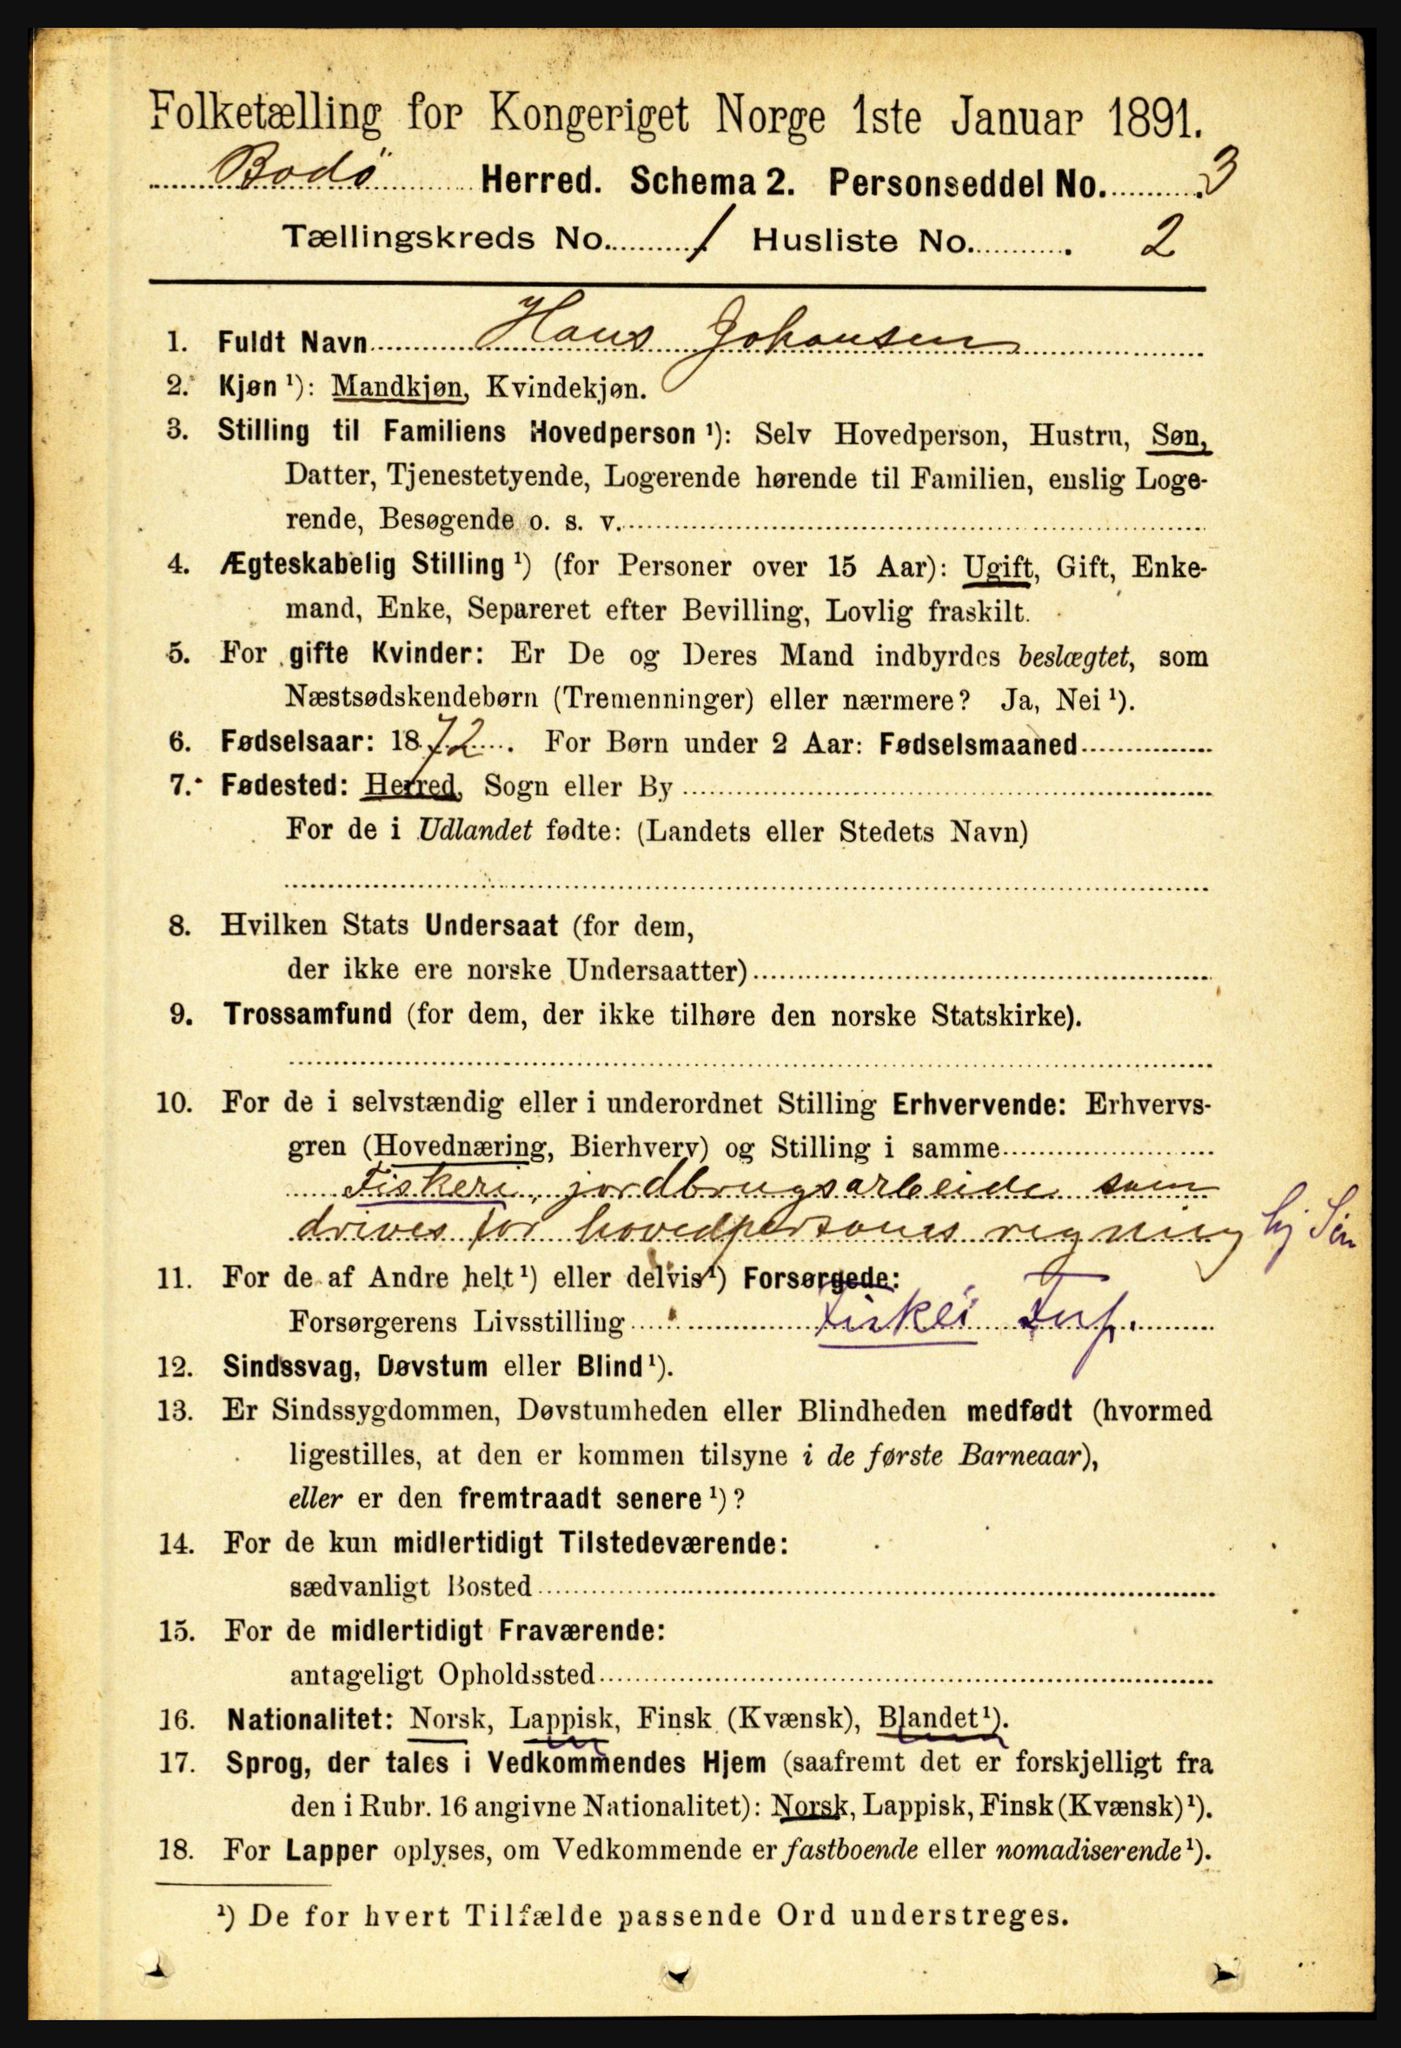 Folketælling for Kongeriget Norge 1ste Januar 1891.
Bodø Herred. Schema 2. Personseddel No. 3
Tællingskreds No. 1 Husliste No. 2
1. Fuldt Navn Hans Johansen
2. Kjøn ¹): Mandkjøn, Kvindekjøn.
3. Stilling til Familiens Hovedperson ¹): Selv Hovedperson, Hustru, Søn,
Datter, Tjenestetyende, Logerende hørende til Familien, enslig Loge-
rende, Besøgende o. s. v.
4. Ægteskabelig Stilling ¹) (for Personer over 15 Aar): Ugift, Gift, Enke-
mand, Enke, Separeret efter Bevilling, Lovlig fraskilt.
5. For gifte Kvinder: Er De og Deres Mand indbyrdes beslægtet, som
Næstsødskendebørn (Tremenninger) eller nærmere? Ja, Nei ¹).
6. Fødselsaar: 1872. For Børn under 2 Aar: Fødselsmaaned
7. Fødested: Herred, Sogn eller By
For de i Udlandet fødte: (Landets eller Stedets Navn)
8. Hvilken Stats Undersaat (for dem,
der ikke ere norske Undersaatter)
9. Trossamfund (for dem, der ikke tilhøre den norske Statskirke).
10. For de i selvstændig eller i underordnet Stilling Erhvervende: Erhvervs-
gren (Hovednæring, Bierhverv) og Stilling i samme
Fiskeri, jordbrugsarbeide som
drives for hovedpersones regning hj Søn
11. For de af Andre helt ¹) eller delvis ¹) Forsørgede:
Forsørgerens Livsstilling Fiskei
12. Sindssvag, Døvstum eller Blind ¹).
13. Er Sindssygdommen, Døvstumheden eller Blindheden medfødt (hvormed
ligestilles, at den er kommen tilsyne i de første Barneaar),
eller er den fremtraadt senere ¹)?
14. For de kun midlertidigt Tilstedeværende:
sædvanligt Bosted
15. For de midlertidigt Fraværende:
antageligt Opholdssted
16. Nationalitet: Norsk, Lappisk, Finsk (Kvænsk), Blandet ¹).
17. Sprog, der tales i Vedkommendes Hjem (saafremt det er forskjelligt fra
den i Rubr. 16 angivne Nationalitet): Norsk, Lappisk, Finsk (Kvænsk) ¹).
18. For Lapper oplyses, om Vedkommende er fastboende eller nomadiserende ¹).
¹) De for hvert Tilfælde passende Ord understreges.